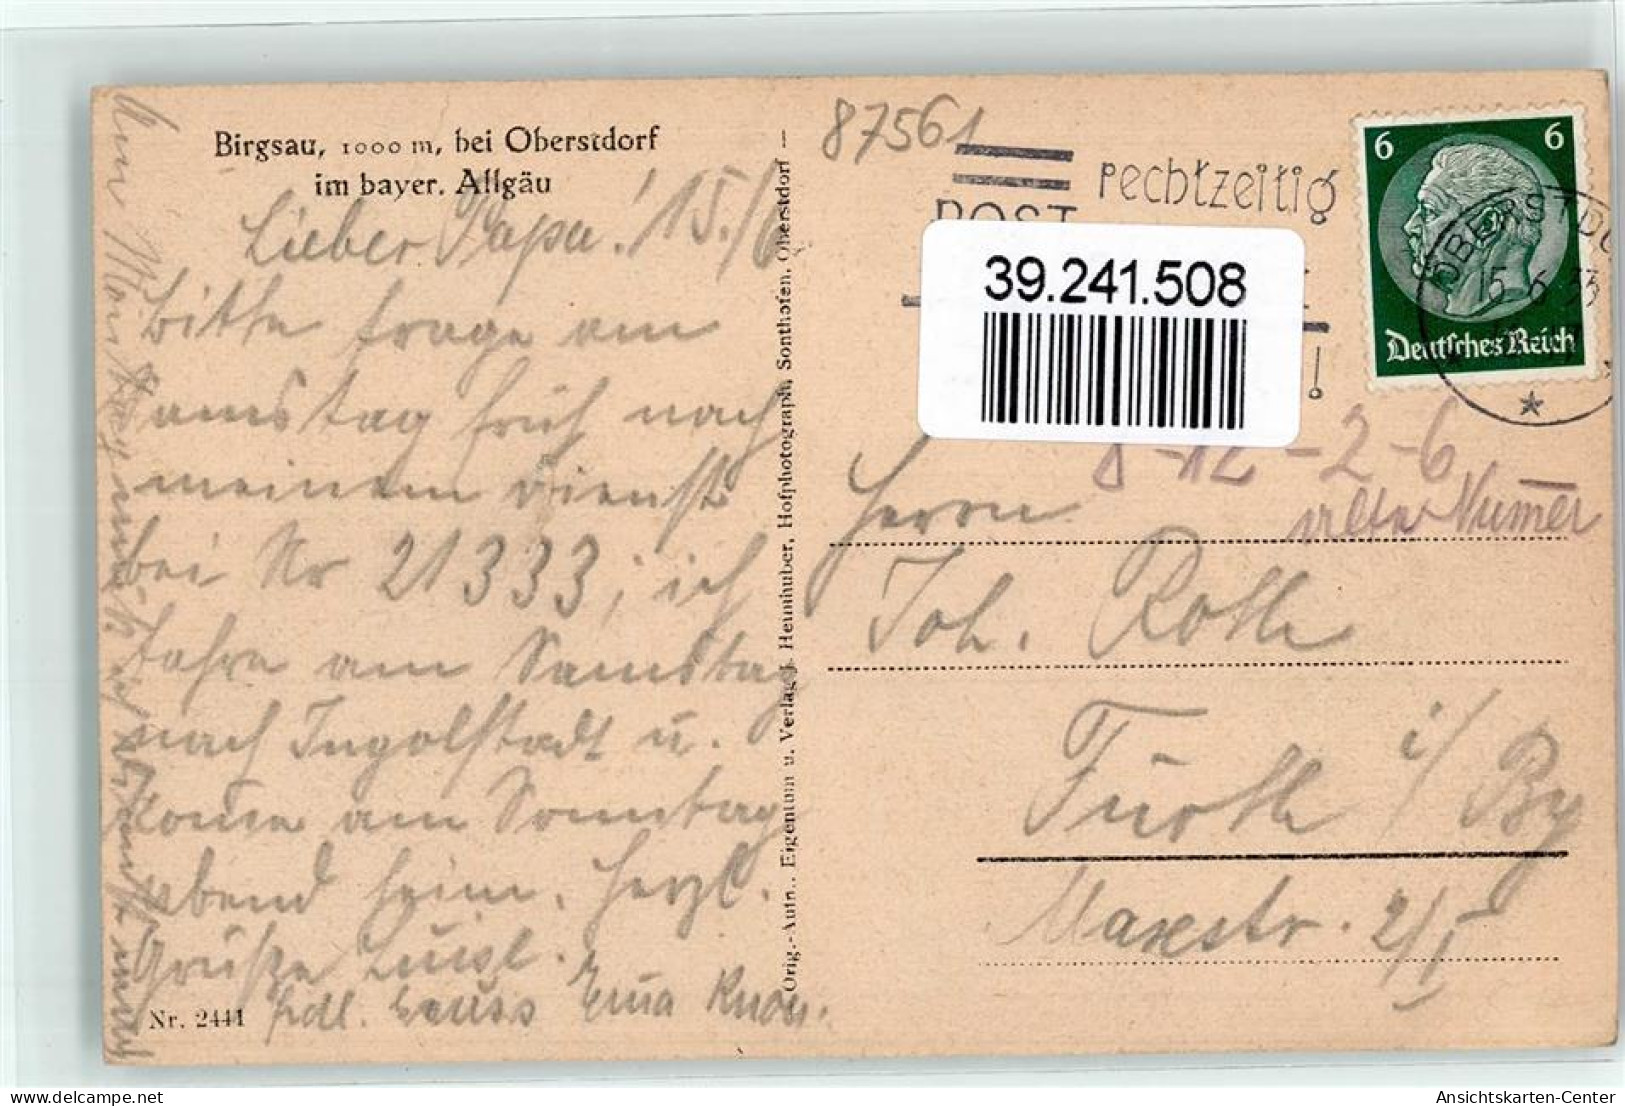 Birgsau, 1000 m, bei Oberstdorf
im bayer. Allgäu
Lieber Papa! 15./6
bitte frage am
amstag früh nach
meinem Dienst
bei Nr 21333, ich
fahre am Samstag
nach Ingolstadt u.
komme am Sonntag
abend heim. Herzl.
Grüße Luisl.
frdl. Gruss Erna Knorr.
Nr. 2441
Orig.-Aufn., Eigentum u. Verlag: Heimhuber, Hofphotograph, Sonthofen, Oberstdorf
87561
rechtzeitig
POST
6 6
Deutsches Reich
OBERSTDO
15.6.33
39.241.508
8-12-2-6
alte Numer
Herrn
Joh. Roth
Fürth i/By
Maxstr. 2/I
delcampe.net
Ansichtskarten-Center